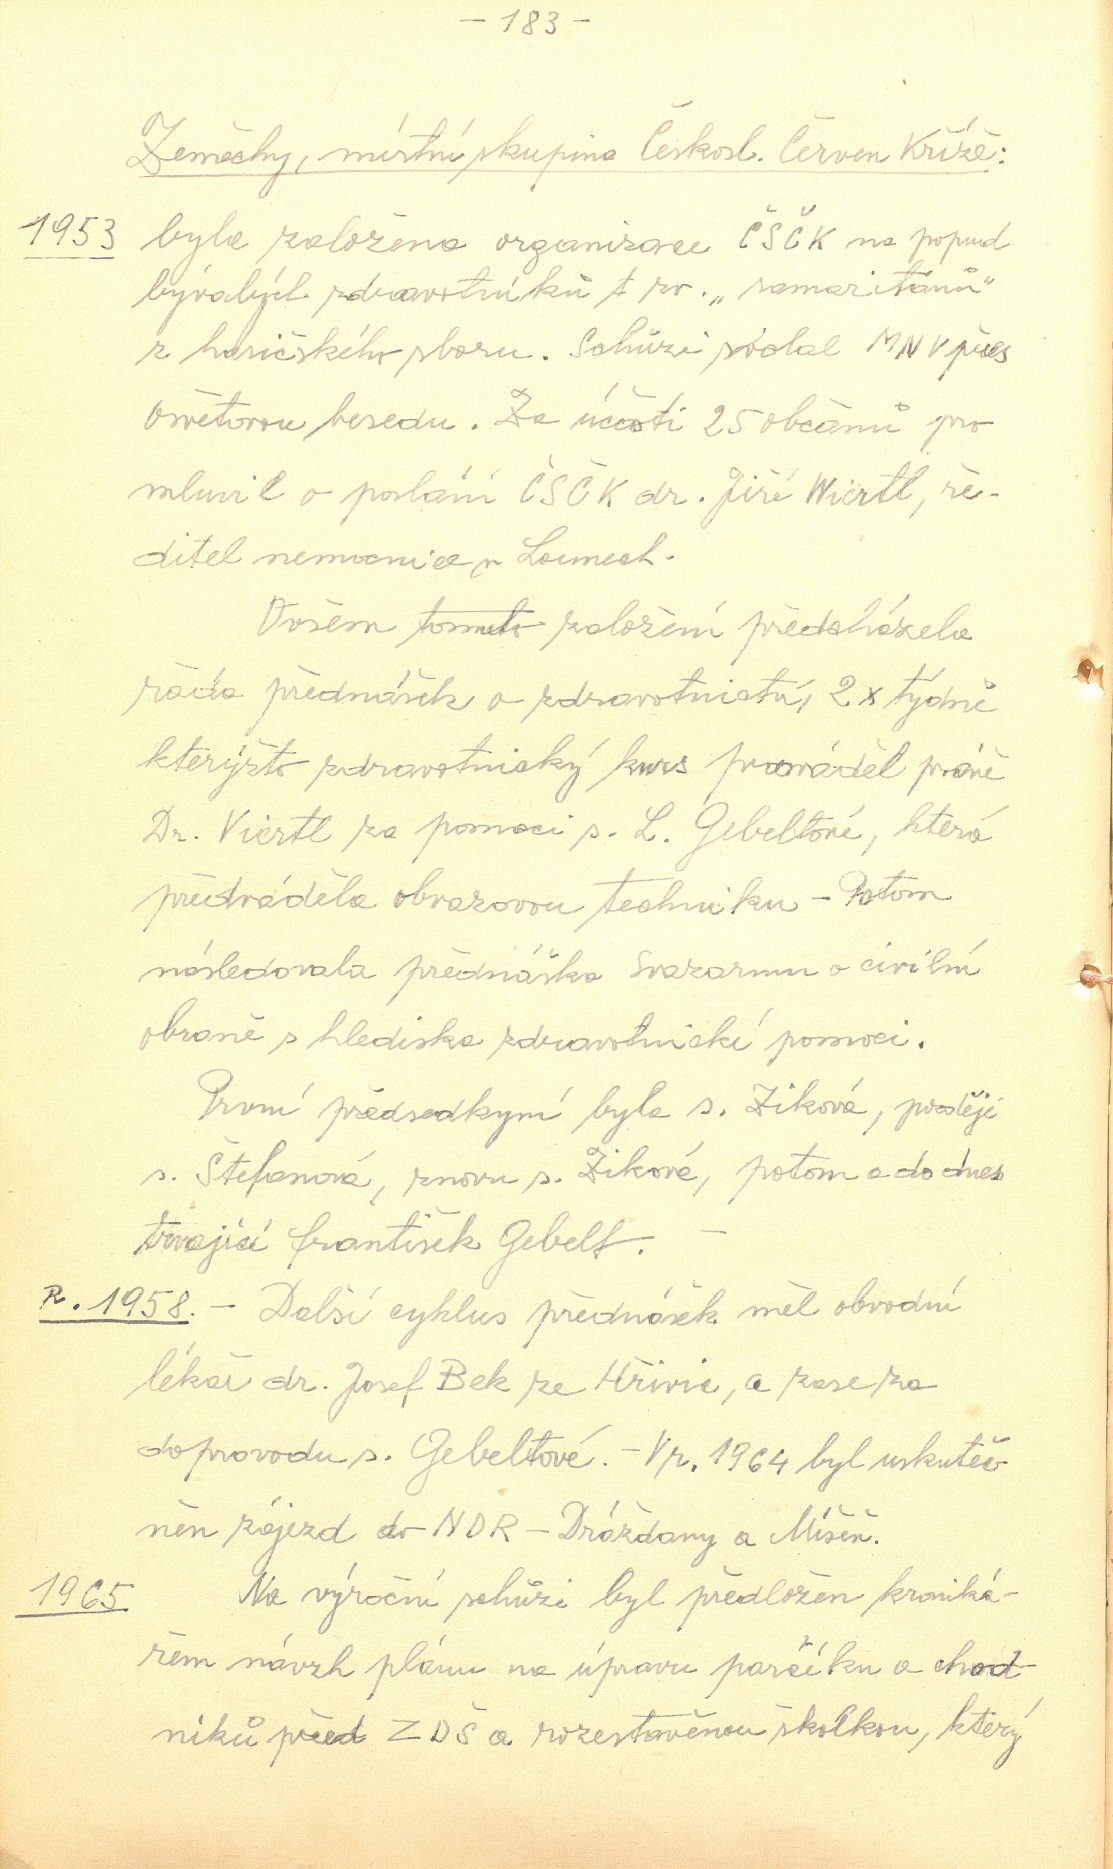 - 183 -
Zeměchy, místní skupina Českosl. Červen Kříže:
1953 byla založena organizace ČSČK na popud
bývalých zdravotníků t zv. „samaritánů"
z hasičského sboru. Schůzi svolal MNV přes
Osvětovou besedu. Za účasti 25 občanů pro
mluvil o poslání ČSČK dr. Jiří Wiertl, ře-
ditel nemocnice v Lounech.
Ovšem tomuto založení předcházela
řada přednášek o zdravotnictví, 2x týdně
kterýžto zdravotnický kurs prováděl právě
Dr. Viertl za pomoci s. L. Gebeltové, která
předváděla obvazovou techniku - Potom
následovala přednáška Svazarmu o civilní
obraně s hlediska zdravotnické pomoci.
První předsedkyní byla s. Ziková, později
s. Štefanová, znovu s. Ziková, potom a do dnes
trvající František Gebelt. -
R. 1958. - Další cyklus přednášek měl obvodní
lékař dr. Josef Bek ze Hřivic, a zase za
doprovodu s. Gebeltové. - V r. 1964 byl uskuteč
něn zájezd do NDR - Drážďany a Míšeň.
1965 Na výroční schůzi byl předložen kroniká-
řem návrh plánu na úpravu parčíku a chod
níků před ZDŠ a rozestavěnou školkou, který